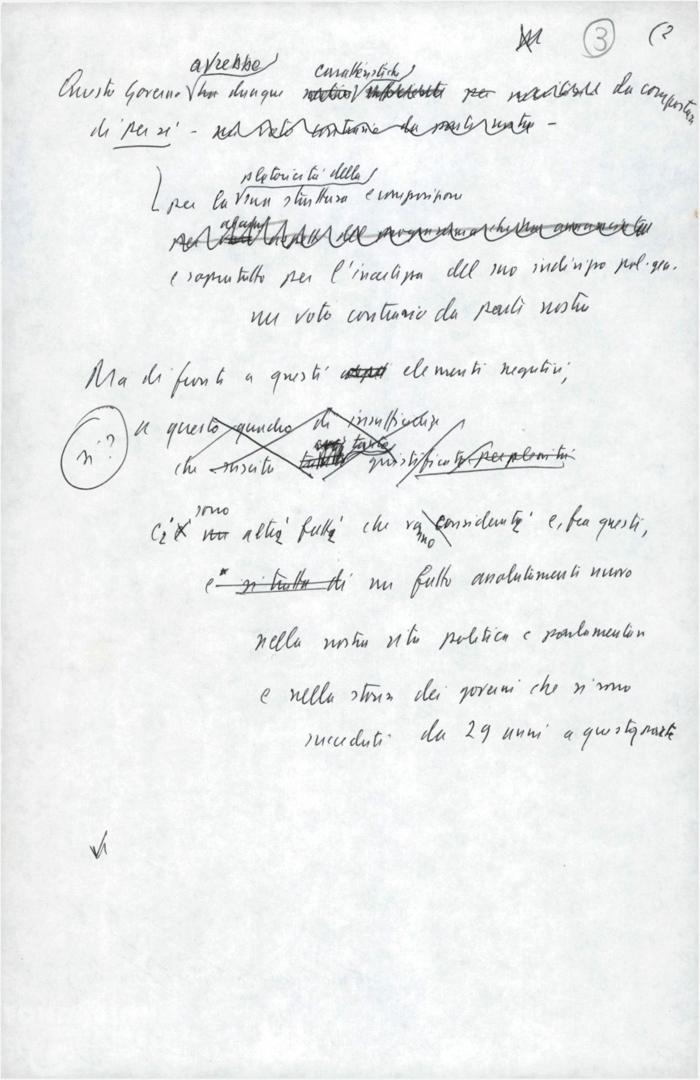 3
avrebbe caratteristiche
Questo Governo ha dunque per da comportare
di per sé - un voto contrario da parte nostra -
della
per la sua struttura e composizione
e soprattutto per l'incertezza del suo indirizzo pol. gen.
un voto contrario da parte nostra
Ma di fronte a questi elementi negativi,
a questo quadro di insufficienze
si?
che suscita tante giustificate perplessità
sono
c'è un altri fatti che va considerati e, fra questi,
e si tratta di un fatto assolutamente nuovo
nella nostra vita politica e parlamentare
e nella storia dei governi che si sono
succeduti da 29 anni a questa parte